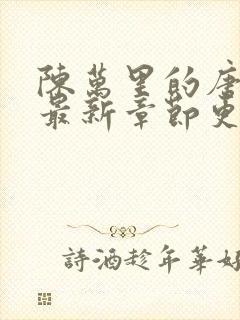 陳萬里的唐
最新章節更
詩酒趁年華好